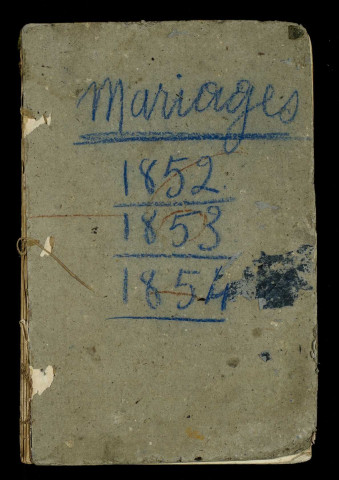 Mariages
1852
1853
1854